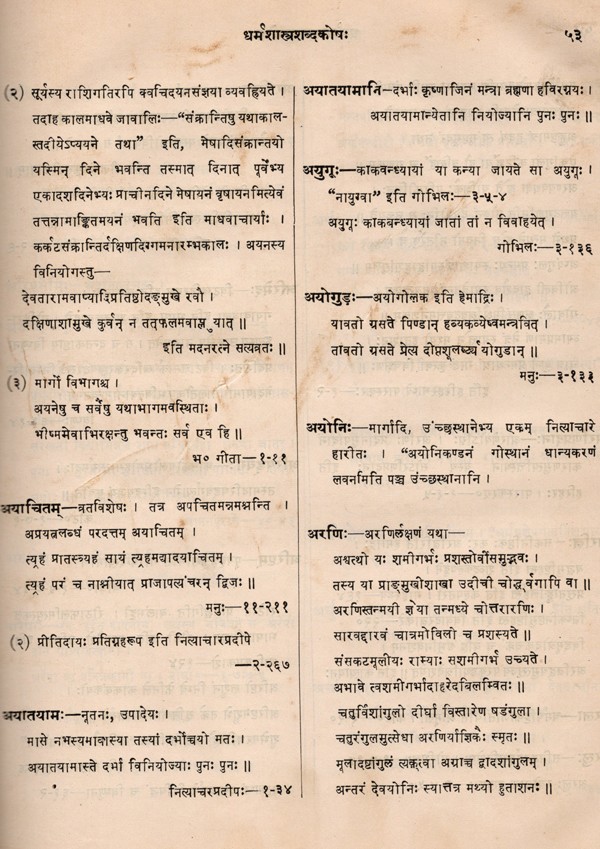 धर्मशास्त्रशब्दकोषः
५३
(२) सूर्यस्य राशिगतिरपि क्वचिदयनसंज्ञया व्यवह्रियते ।
तदाह कालमाधवे जावालिः—“संक्रान्तिषु यथाकाल-
स्तदीयेऽप्ययने तथा” इति, मेषादिसंक्रान्तयो
यस्मिन् दिने भवन्ति तस्मात् दिनात् पूर्वेभ्य
एकादशदिनेभ्यः प्राचीनदिने मेषायनं वृषायनमित्येवं
तत्तन्नामाङ्कितमयनं भवति इति माधवाचार्याः ।
कर्कटसंक्रान्तिर्दक्षिणदिग्गमनारम्भकालः । अयनस्य
विनियोगस्तु—
देवतारामवाप्यादिप्रतिष्ठोदङ्मुखे रवौ ।
दक्षिणाशामुखे कुर्वन् न तत्फलमवाप्नुयात् ॥
इति मदनरत्ने सत्यव्रतः ॥
(३) मार्गो विभागश्च ।
अयनेषु च सर्वेषु यथाभागमवस्थिताः ।
भीष्ममेवाभिरक्षन्तु भवन्तः सर्व एव हि ॥
भ० गीता—१-११
अयाचितम्—व्रतविशेषः । तत्र अपचितमन्नमश्नन्ति ।
अप्रयत्नलब्धं परदत्तम् अयाचितम् ।
त्र्यहं प्रातस्त्र्यहं सायं त्र्यहमद्यादयाचितम् ।
त्र्यहं परं च नाश्नीयात् प्राजापत्यंचरन् द्विजः ॥
मनुः—११-२११
(२) प्रीतिदायः प्रतिग्रहरूप इति नित्याचारप्रदीपे
—२-२६७
अयातयामः—नूतनः, उपादेयः ।
मासे नभस्यमावास्या तस्यां दर्भोच्चयो मतः ।
अयातयामास्ते दर्भा विनियोज्याः पुनः पुनः ॥
नित्याचरप्रदीपः—१-३४
अयातयामानि—दर्भाः कृष्णाजिनं मन्त्रा ब्रह्मणा हविरग्नयः ।
अयातयामान्येतानि नियोज्यानि पुनः पुनः ॥
अयुगूः—काकवन्ध्यायां या कन्या जायते सा अयुगूः ।
“नायुग्वा” इति गोभिलः—३-५-४
अयुगूः काकवन्ध्यायां जातां तां न विवाहयेत् ।
गोभिलः—३-१३६
अयोगुडः—अयोगोलक इति हेमाद्रिः ।
यावतो ग्रसते पिण्डान् हव्यकव्येष्वमन्त्रवित् ।
तावतो ग्रसते प्रेत्य दीप्तशूलर्ष्ट्ययोगुडान् ॥
मनुः—३-१३३
अयोनिः—मार्गादि, उच्छस्थानेभ्य एकम् नित्याचारे
हारीतः । “अयोनिकण्डनं गोस्थानं धान्यकरणं
लवनमिति पञ्च उच्छस्थानानि ।
अरणिः—अरणिर्लक्षणं यथा—
अश्वत्थो यः शमीगर्भः प्रशस्तोर्वीसमुद्भवः ।
तस्य या प्राङ्मुखीशाखा उदीची चोर्द्ध्वगापि वा ॥
अरणिस्तन्मयी ज्ञेया तन्मध्ये चोत्तरारणिः ।
सारवद्दारवं चात्रमोविली च प्रशस्यते ॥
संसक्टमूलीयः राम्याः सशमीगर्भ उच्यते ।
अभावे त्वशमीगर्भादाहरेदबिलम्वितः ॥
चतुर्विंशांगुलो दीर्घा विस्तारेण षडंगुला ।
चतुरंगुलमुत्सेधा अरणिर्याज्ञिकैः स्मृतः ॥
मूलादष्टांगुलं त्यक्त्वा अग्राच्च द्वादशांगुलम् ।
अन्तरं देवयोनिः स्यात्तत्र मथ्यो हुताशनः ॥